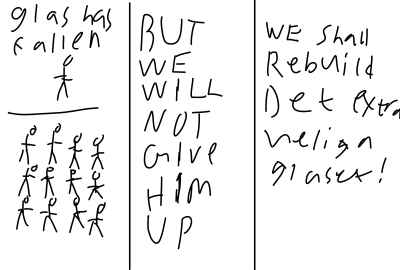 glas has
fallen
BUT
WE
WILL
NOT
GIVE
HIM
UP
WE shall
Rebuild
Det extra
veliga
glaset!